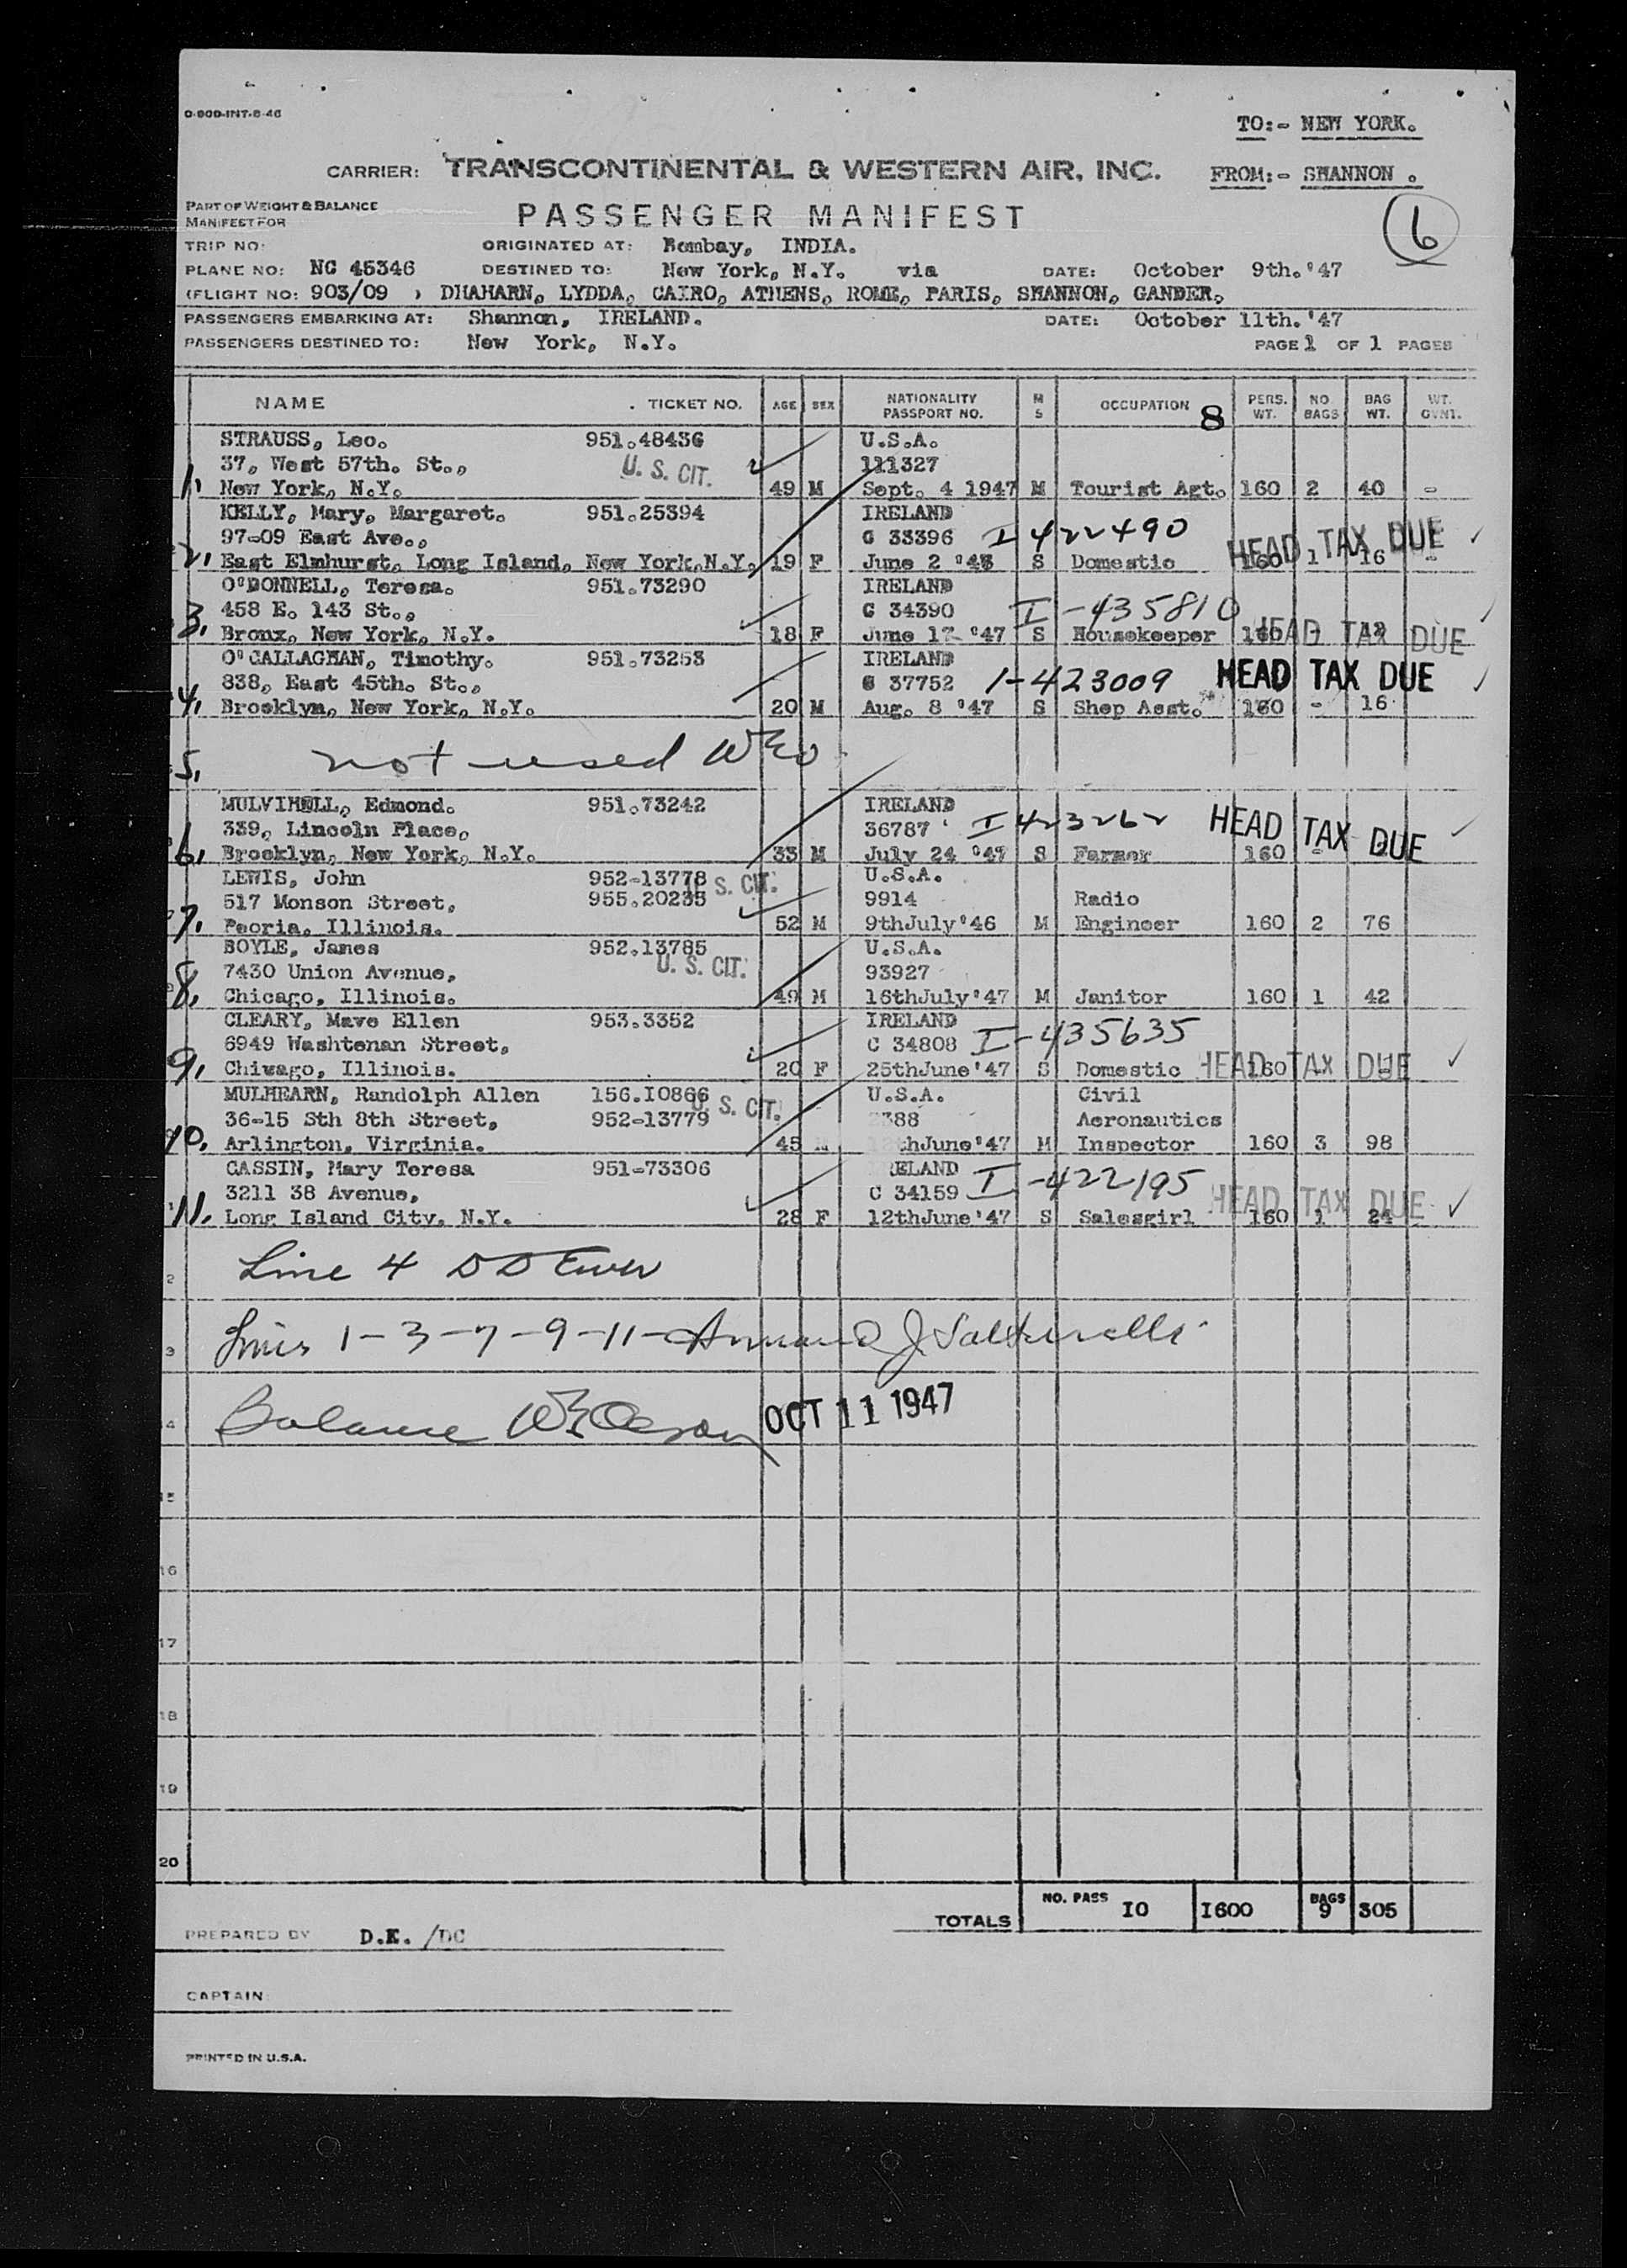 O-800-INT-8-46
TO:- NEW YORK.
CARRIER: TRANSCONTINENTAL & WESTERN AIR, INC. FROM:- SHANNON .
PART OF WEIGHT & BALANCE
MANIFEST FOR
PASSENGER MANIFEST
6
TRIP NO: ORIGINATED AT: Bombay, INDIA.
PLANE NO: NC 45346 DESTINED TO: New York, N.Y. via DATE: October 9th.'47
(FLIGHT NO: 903/09 ) DHAHARN, LYDDA, CAIRO, ATHENS, ROME, PARIS, SHANNON, GANDER.
PASSENGERS EMBARKING AT: Shannon, IRELAND. DATE: October 11th.'47
PASSENGERS DESTINED TO: New York, N.Y. PAGE 1 OF 1 PAGES
NAME . TICKET NO. AGE SEX NATIONALITY PASSPORT NO. M S OCCUPATION 8 PERS. WT. NO BAGS BAG WT. WT. GVNT.
STRAUSS, Leo. 951.48436 U.S.A.
37, West 57th. St., U. S. CIT. 111327
1, New York, N.Y. 49 M Sept. 4 1947 M Tourist Agt. 160 2 40 -
KELLY, Mary, Margaret. 951.25394 IRELAND
97-09 East Ave., C 33396 I 422490 HEAD TAX DUE
2, East Elmhurst, Long Island, New York,N.Y. 19 F June 2 '47 S Domestic 160 1 16 -
O'DONNELL, Teresa. 951.73290 IRELAND
458 E. 143 St., C 34390 I-435810 HEAD TAX DUE
3, Bronx, New York, N.Y. 18 F June 17 '47 S Housekeeper 160
O'CALLAGHAN, Timothy. 951.73253 IRELAND
838, East 45th. St., 37752 1-423009 HEAD TAX DUE
4, Brooklyn, New York, N.Y. 20 M Aug. 8 '47 S Shop Asst. 160 - 16
5, not used WEO
MULVIHELL, Edmond. 951.73242 IRELAND
339, Lincoln Place, 36787 I 423262 HEAD TAX DUE
6, Brooklyn, New York, N.Y. 33 M July 24 '47 S Farmer 160
LEWIS, John 952-13778 U. S. CIT. U.S.A.
517 Monson Street, 955.20235 9914 Radio
7, Peoria, Illinois. 52 M 9thJuly'46 M Engineer 160 2 76
BOYLE, James 952.13785 U.S.A.
7430 Union Avenue, U. S. CIT. 93927
8, Chicago, Illinois. 49 M 16thJuly'47 M Janitor 160 1 42
CLEARY, Mave Ellen 953.3352 IRELAND
6949 Washtenan Street, C 34808 I-435635
9, Chivago, Illinois. 20 F 25thJune'47 S Domestic 160 HEAD TAX DUE
MULHEARN, Randolph Allen 156.I0866 U. S. CIT. U.S.A. Civil
36-15 Sth 8th Street, 952-13779 388 Aeronautics
10, Arlington, Virginia. 45 hJune'47 M Inspector 160 3 98
CASSIN, Mary Teresa 951-73306 RELAND
3211 38 Avenue, C 34159 I-422195 HEAD TAX DUE
11. Long Island City, N.Y. 28 F 12thJune'47 S Salesgirl 160 1 24
2 Line 4
3 Lines 1-3-7-9-11-
4 Balance OCT 11 1947
15
16
17
18
19
20
TOTALS NO. PASS I0 I600 BAGS 9 305
PREPARED BY D.K. /DC
CAPTAIN
PRINTED IN U.S.A.